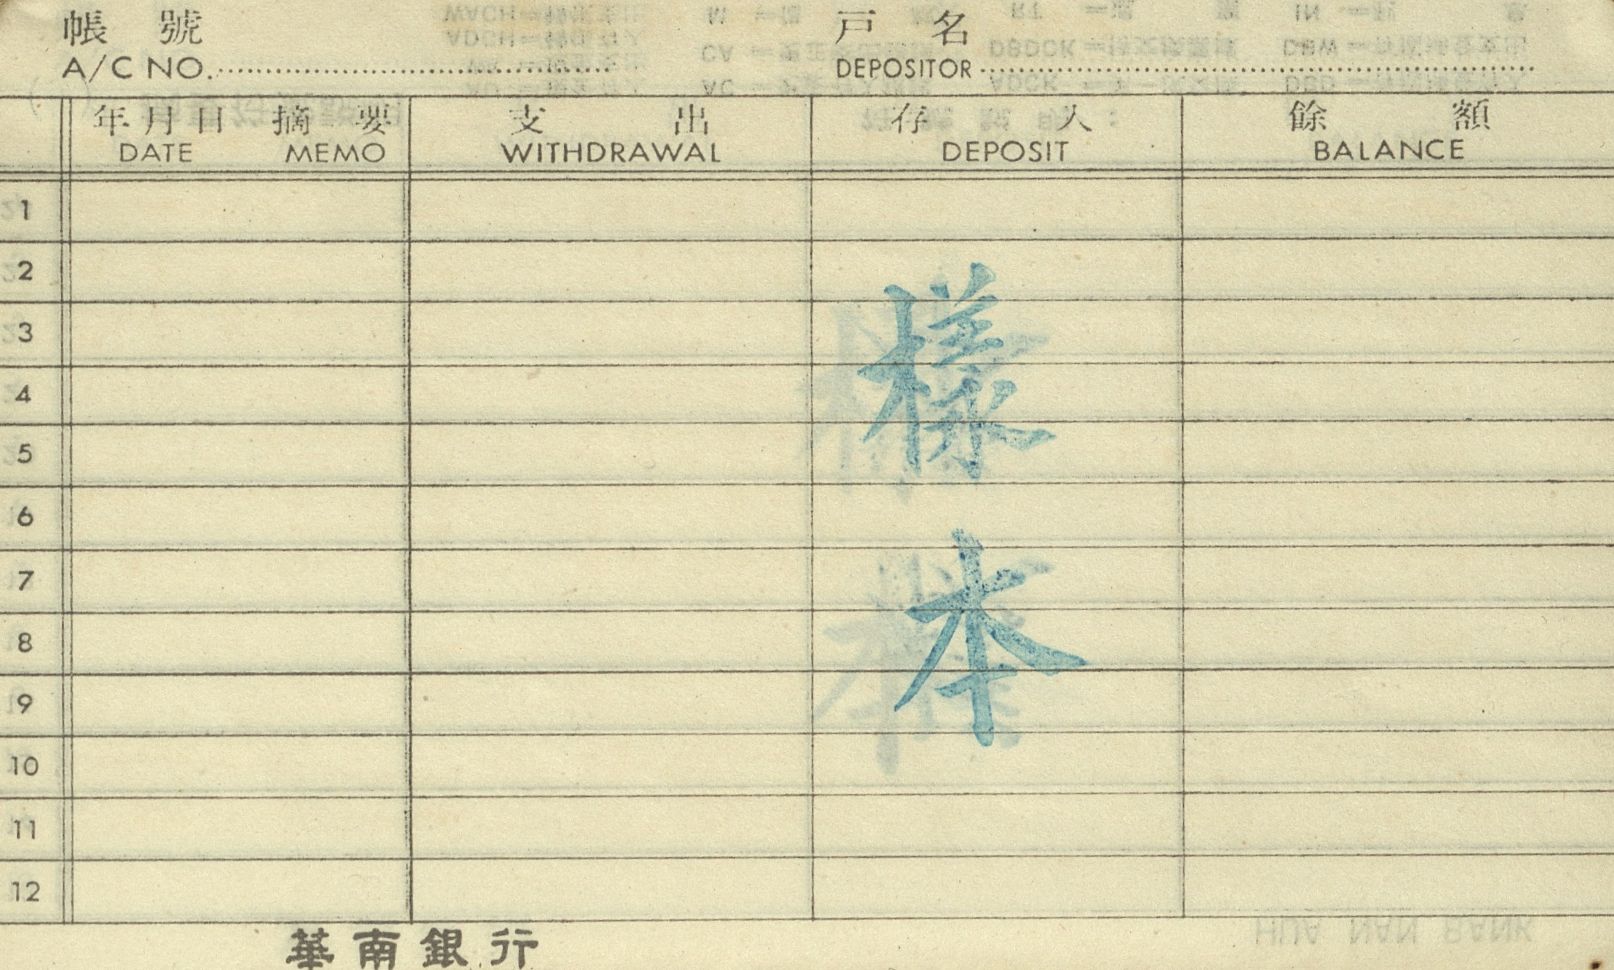 帳號 戶名
A/C NO. DEPOSITOR
年月日 摘要 支出 存入 餘額
DATE MEMO WITHDRAWAL DEPOSIT BALANCE
1
2
3
4
5
6
7
8
9
10
11
12
樣本
華南銀行
HUA NAN BANK